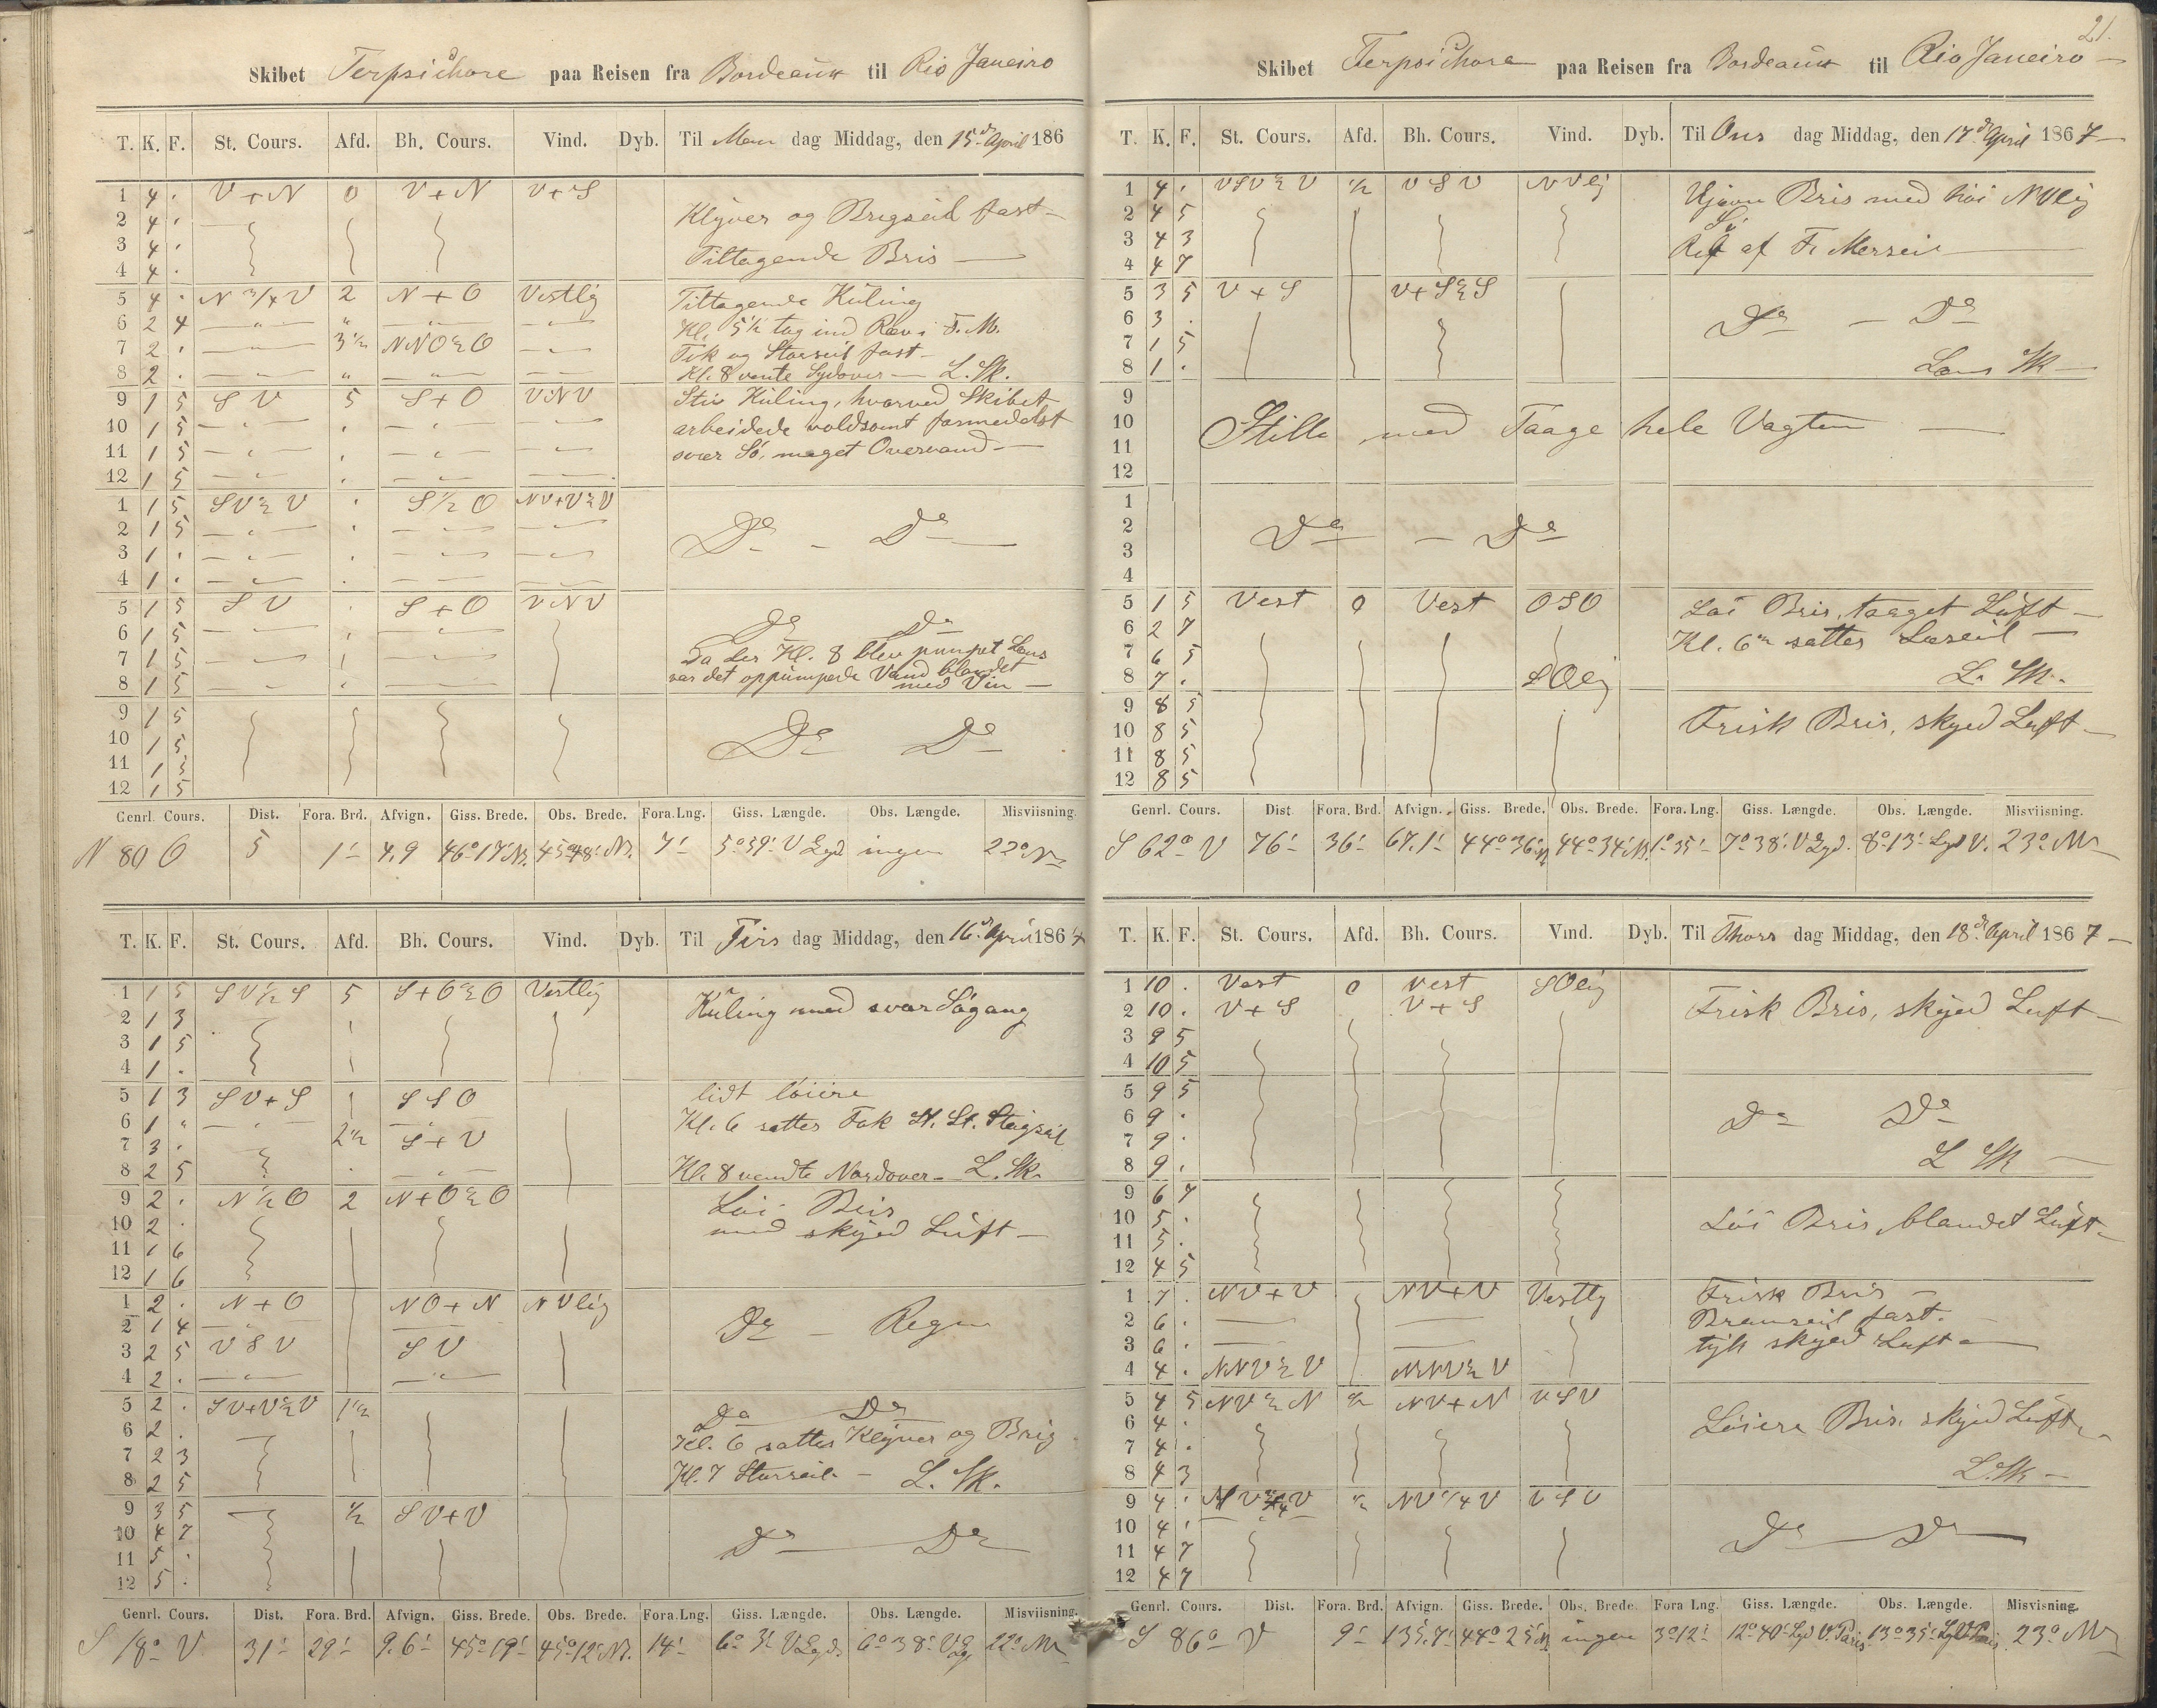 Skibet Terpsichore paa Reisen fra Bordeaux til Rio Janeiro
T. K. F. St. Cours. Afd. Bh. Cours. Vind. Dyb. Til Man dag Middag, den 15d April 186
1 4 . V + N 0 V + N V + S
2 4 . Klyver og Brigseil fast
3 4 .
4 4 . Tiltagende Bris
5 4 . N 3/4 V 2 N + O Vestlig Tiltagende Kuling
6 2 4 — " — " — " — — " — Kl. 5 1/2 tog ind Rev i F. M.
7 2 . — " — 3 1/2 NNO 1/2 O — " — Fok og Storseil fast
8 2 . — " — " — " — — " — Kl. 8 vente Sydover — L. Sk.
9 1 5 S V 5 S + O VNV Stiv Kuling, hvorved Skibet
10 1 5 arbeidede voldsomt formedelst
11 1 5 svær Sö, meget Overvand
12 1 5
1 1 5 SV 1/2 V S 1/2 O NV+V 1/2 V
2 1 5 Do — Do
3 1 .
4 1 .
5 1 5 S V S + O VNV
6 1 5 Do Do
7 1 5 Da der Kl. 8 blev pumpet Lens
8 1 5 var det oppumpede Vand blandet
med Vin
9 1 5
10 1 5 Do Do
11 1 5
12 1 5
Genrl. Cours. Dist. Fora. Brd. Afvign. Giss. Brede. Obs. Brede. Fora.Lng. Giss. Længde. Obs. Længde. Misviisning.
N 80 O 5 1' 4,9 46° 17' N. 45° 48' N. 7' 5° 39' V Lgd ingen 22° N
T. K. F. St. Cours. Afd. Bh. Cours. Vind. Dyb. Til Tirs dag Middag, den 16d April 1867
1 1 5 SV 1/2 S 5 S+O 1/2 O Vestlig Kuling med svær Sögang
2 1 3
3 1 5
4 1 .
5 1 3 SV+S SSO lidt löiere
6 1 " Kl. 6 sattes Fok St. St. Stagseil
7 3 . 2 1/2 S + V
8 2 5 Kl. 8 vendte Nordover — L. Sk.
9 2 . N 1/2 O 2 N+O 1/2 O Löi Bris
10 2 . med skyed Luft
11 1 6
12 1 6
1 2 . N + O NO + N NVlig
2 1 4 Do — Regn
3 2 5 V S V S V
4 2 .
5 2 . SV+V 1/2 V 1 1/2 Do Do
6 2 . Kl. 6 sattes Klyver og Brig
7 2 3 Kl. 7 Storseil — L. Sk.
8 2 5
9 3 5 1/2 SV+V
10 4 7 Do — Do
11 5 .
12 5 .
Genrl. Cours. Dist. Fora. Brd. Afvign. Giss. Brede. Obs. Brede. Fora.Lng. Giss. Længde. Obs. Længde. Misviisning.
S 18° V 31' 29' 9.6' 45° 19' 45° 12' N. 14' 6° 3' V Lgd. 6° 38' V Lg. 22° N
21.
Skibet Terpsichore paa Reisen fra Bordeaux til Rio Janeiro
T. K. F. St. Cours. Afd. Bh. Cours. Vind. Dyb. Til Ons dag Middag, den 17d April 1867
1 4 . VSV 1/2 V 1/2 V S V NVlig Ujævn Bris med höi NVlig
2 4 5 Sö
3 4 3 Rif af F. Merseil
4 4 7
5 3 5 V + S V+S 1/2 S
6 3 . Do — Do
7 1 5
8 1 . Lens Sk
9
10 Stille med Taage hele Vagten
11
12
1
2 Do — Do
3
4
5 1 5 Vest 0 Vest OSO Löi Bris, taaget Luft
6 2 7 Kl. 6 sattes Læseil
7 6 5
8 7 . SOlig L. Sk.
9 8 5 Frisk Bris, skyed Luft
10 8 5
11 8 5
12 8 5
Genrl. Cours. Dist Fora. Brd. Afvign. Giss. Brede. Obs. Brede. Fora.Lng. Giss. Længde. Obs. Længde. Misviisning.
S 62° V 76' 36' 67.1' 44° 36' N 44° 34' N. 1° 35' 7° 38' V Lgd. 8° 13' Lgd V. 23° N
T. K. F. St. Cours. Afd. Bh. Cours. Vind. Dyb. Til Thors dag Middag, den 18d April 1867
1 10 . Vest 0 Vest SOlig Frisk Bris, skyed Luft
2 10 . V + S V + S
3 9 5
4 10 5
5 9 5
6 9 . Do Do
7 9 .
8 9 . L Sk
9 6 7
10 5 . Löi Bris, blandet Luft
11 5 .
12 4 5
1 7 . NV+V NV+V Vestlg Frisk Bris
2 6 . Bramseil fast.
3 6 . tyk skyed Luft
4 4 . NNV 1/2 V NNV 1/2 V
5 4 5 NV 1/2 N 1/2 NV+N VSV
6 4 . Löiere Bris, skyed Luft
7 4 .
8 4 3 L. Sk
9 4 . NV 1/4 V VSV
10 4 . Do — Do
11 4 7
12 4 7
Genrl. Cours. Dist. Fora. Brd. Afvign. Giss. Brede. Obs. Brede Fora Lng. Giss. Længde. Obs. Længde. Misvisning.
S 86° V 9' 135.7' 44° 25' N ingen 3° 12' 12° 40' Lgd V. Paris 13° 35' Lgd V Paris 23° N